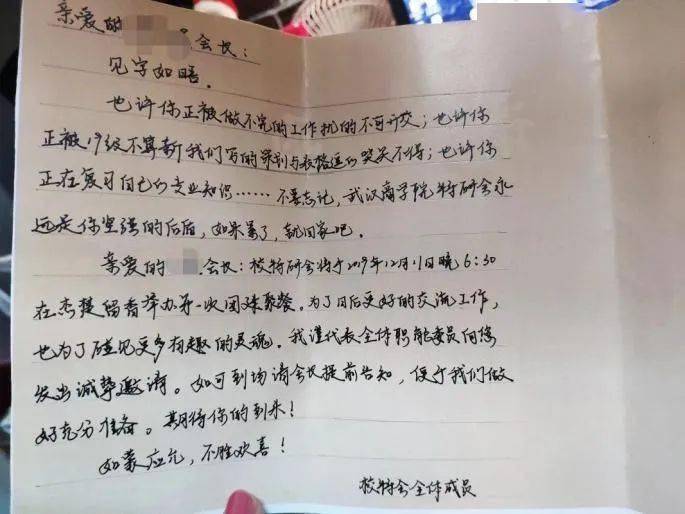 亲爱的 会长：
见字如晤。
也许你正被做不完的工作扰的不可开交；也许你
正被19级不算新我们写的策划与表格逗的哭笑不得；也许你
正在复习自己的专业知识……不要忘记，武汉商学院特研会永
远是你坚强的后盾，如果累了，就回家吧。
亲爱的 会长：校特研会将于2019年12月11日晚6:30
在杰楚留香举办第一次团建聚餐。为了日后更好的交流工作，
也为了碰见更多有趣的灵魂。我谨代表全体职能委员向您
发出诚挚邀请。如可到场请会长提前告知，便于我们做
好充分准备。期待你的到来！
如蒙应允，不胜欢喜！
校特会全体成员